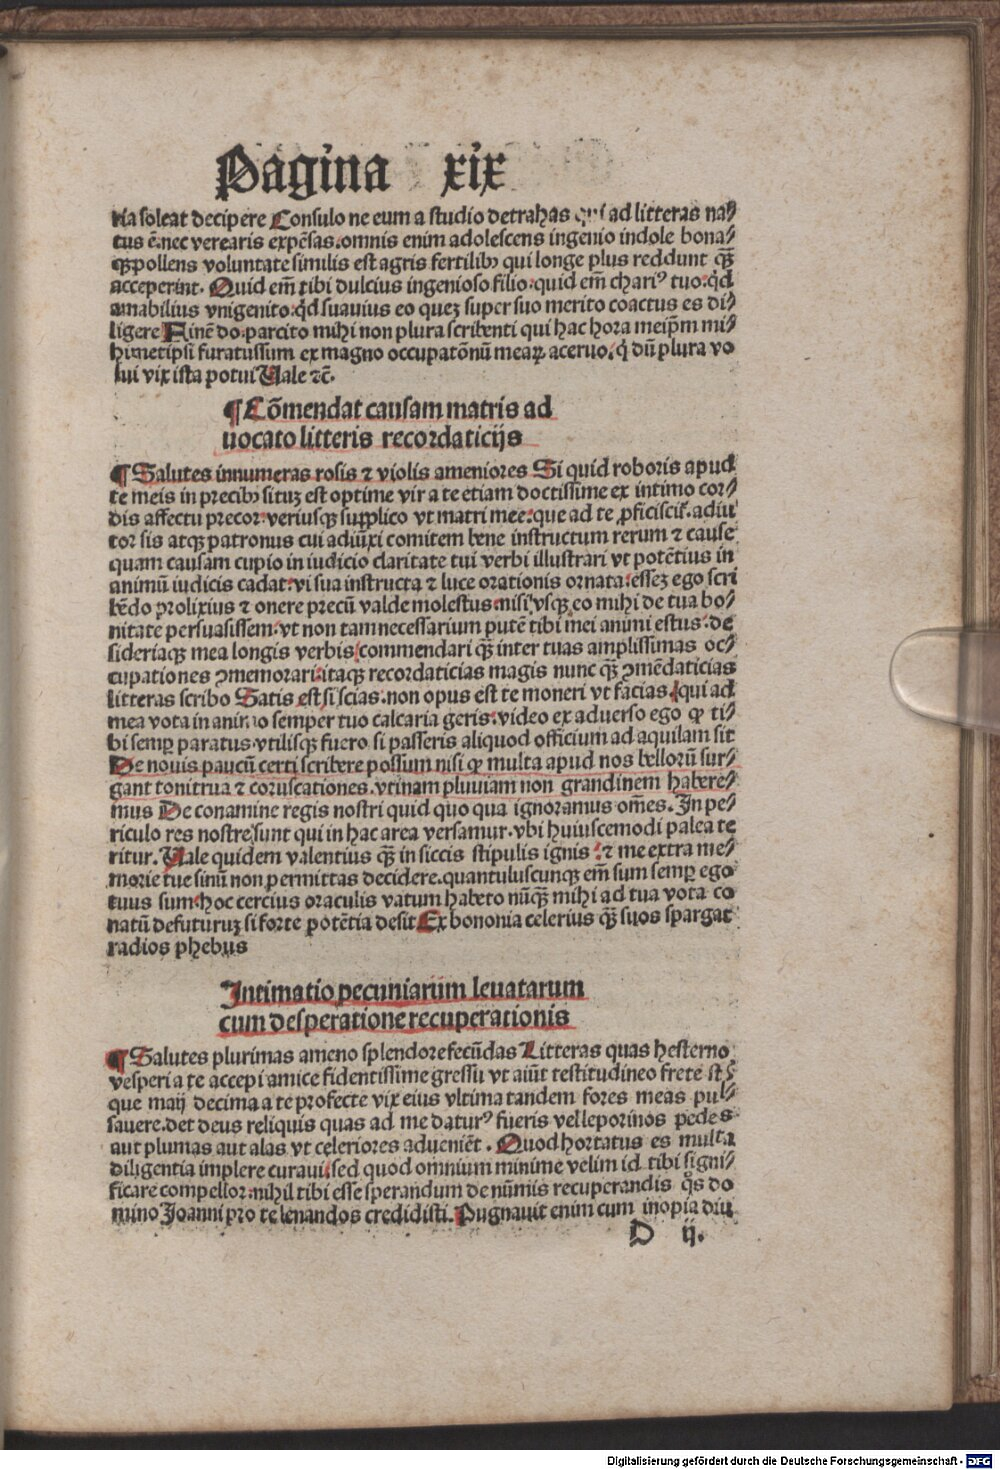 Pagina xix
ria soleat decipere Consulo ne eum a studio detrahas qui ad litteras na⸗
tus ē.nec verearis expēsas.omnis enim adolescens ingenio indole bona⸗
qꝫ pollens voluntate similis est agris fertilibꝫ qui longe plus reddunt qꝫ̄
acceperint. Quid em̄ tibi dulcius ingenioso filio.quid em̄ chariꝰ tuo.qd̄
amabilius vnigenito.qd̄ suauius eo queꝫ super suo merito coactus es di⸗
ligere Finē do.parcito mihi non plura scribenti qui hac hora meip̄m mi⸗
himetipsi furatussum ex magno occupatōnū meaꝝ aceruo.q̇ dū plura vo
lui vix ista potui Vale ⁊c̄.
¶ Cōmendat causam matris ad
uocato litteris recordaticijs
¶ Salutes innumeras rosis ⁊ violis ameniores Si quid roboris apud
te meis in precibꝫ situꝫ est optime vir a te etiam doctissime ex intimo cor⸗
dis affectu precor.veriusqꝫ supplico vt matri mee.que ad te ꝓficiscit̃.adiu
tor sis atqꝫ patronus cui adiūxi comitem bene instructum rerum ⁊ cause
quam causam cupio in iudicio claritate tui verbi illustrari vt potētius in
animū iudicis cadat.vi sua instructa ⁊ luce orationis ornata.esseꝫ ego scri
bēdo prolixius ⁊ onere precū valde molestus.nisi vsqꝫ eo mihi de tua bo⸗
nitate persuasissem.vt non tam necessarium putē tibi mei animi estus.de
sideriaqꝫ mea longis verbis commendari qꝫ̄ inter tuas amplissimas oc⸗
cupationes ꝯmemorari.itaqꝫ recordaticias magis nunc qꝫ̄ ꝯmēdaticias
litteras scribo Satis est si scias.non opus est te moneri vt facias qui ad
mea vota in animo semper tuo calcaria geris.video ex aduerso ego ꝙ ti⸗
bi semꝑ paratus.vtilisqꝫ fuero si passeris aliquod officium ad aquilam sit
De nouis paucū certi scribere possum nisi ꝙ multa apud nos bellorū sur⸗
gant tonitrua ⁊ coruscationes.vtinam pluuiam non grandinem habere⸗
mus De conamine regis nostri quid quo qua ignoramus om̄es. In pe⸗
riculo res nostre sunt qui in hac area versamur.vbi huiuscemodi palea te
ritur. Vale quidem valentius qꝫ̄ in siccis stipulis ignis.⁊ me extra me⸗
morie tue sinū non permittas decidere.quantuluscunqꝫ em̄ sum semꝑ ego
tuus sum.hoc cercius oraculis vatum habeto nūqꝫ̄ mihi ad tua vota co
natū defuturuꝫ si forte potētia desit Ex bononia celerius qꝫ̄ suos spargat
radios phebus
Intimatio pecuniarum leuatarum
cum desperatione recuperationis
¶ Salutes plurimas ameno splendore fecūdas Litteras quas hesterno
vesperi a te accepi amice fidentissime gressu vt aiūt testitudineo frete
que maij decima a te profecte vix eius vltima tandem fores meas pul⸗
sauere.det deus reliquis quas ad me daturꝰ fueris vel leporinos pedes
aut plumas aut alas vt celeriores adueniēt. Quod hortatus es multa
diligentia implere curaui.sed quod omnium minime velim id tibi signi⸗
ficare compellor.nihil tibi esse sperandum de nūmis recuperandis q̊s do
mino Joanni pro te leuandos credidisti. Pugnauit enim cum inopia diu
D ij.
Digitalisierung gefördert durch die Deutsche Forschungsgemeinschaft - DFG